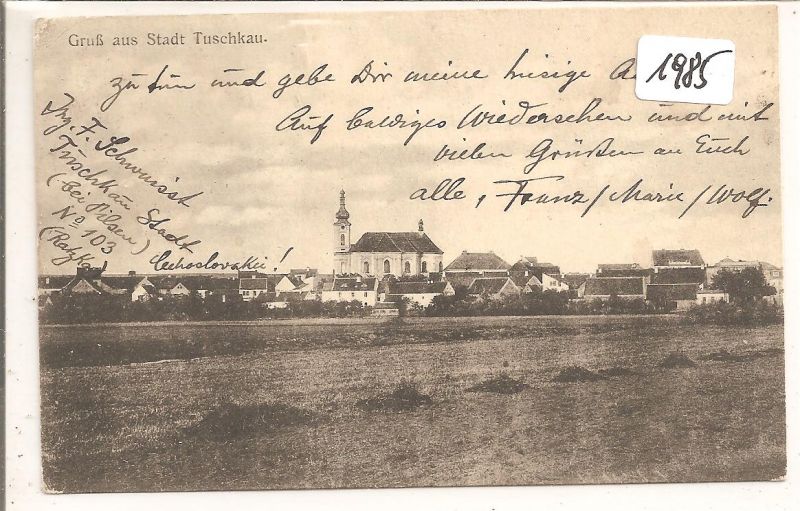 Gruß aus Stadt Tuschkau.
1985
zu tun und gebe Dir meine hiesige
Auf baldiges Wiedersehen und mit
vielen Grüßen an Euch
alle, Franz/Marie/Wolf.
Ing. F.
Tuschkau Stadt
(bei Pilsen)
No 103
Čechoslovakei!